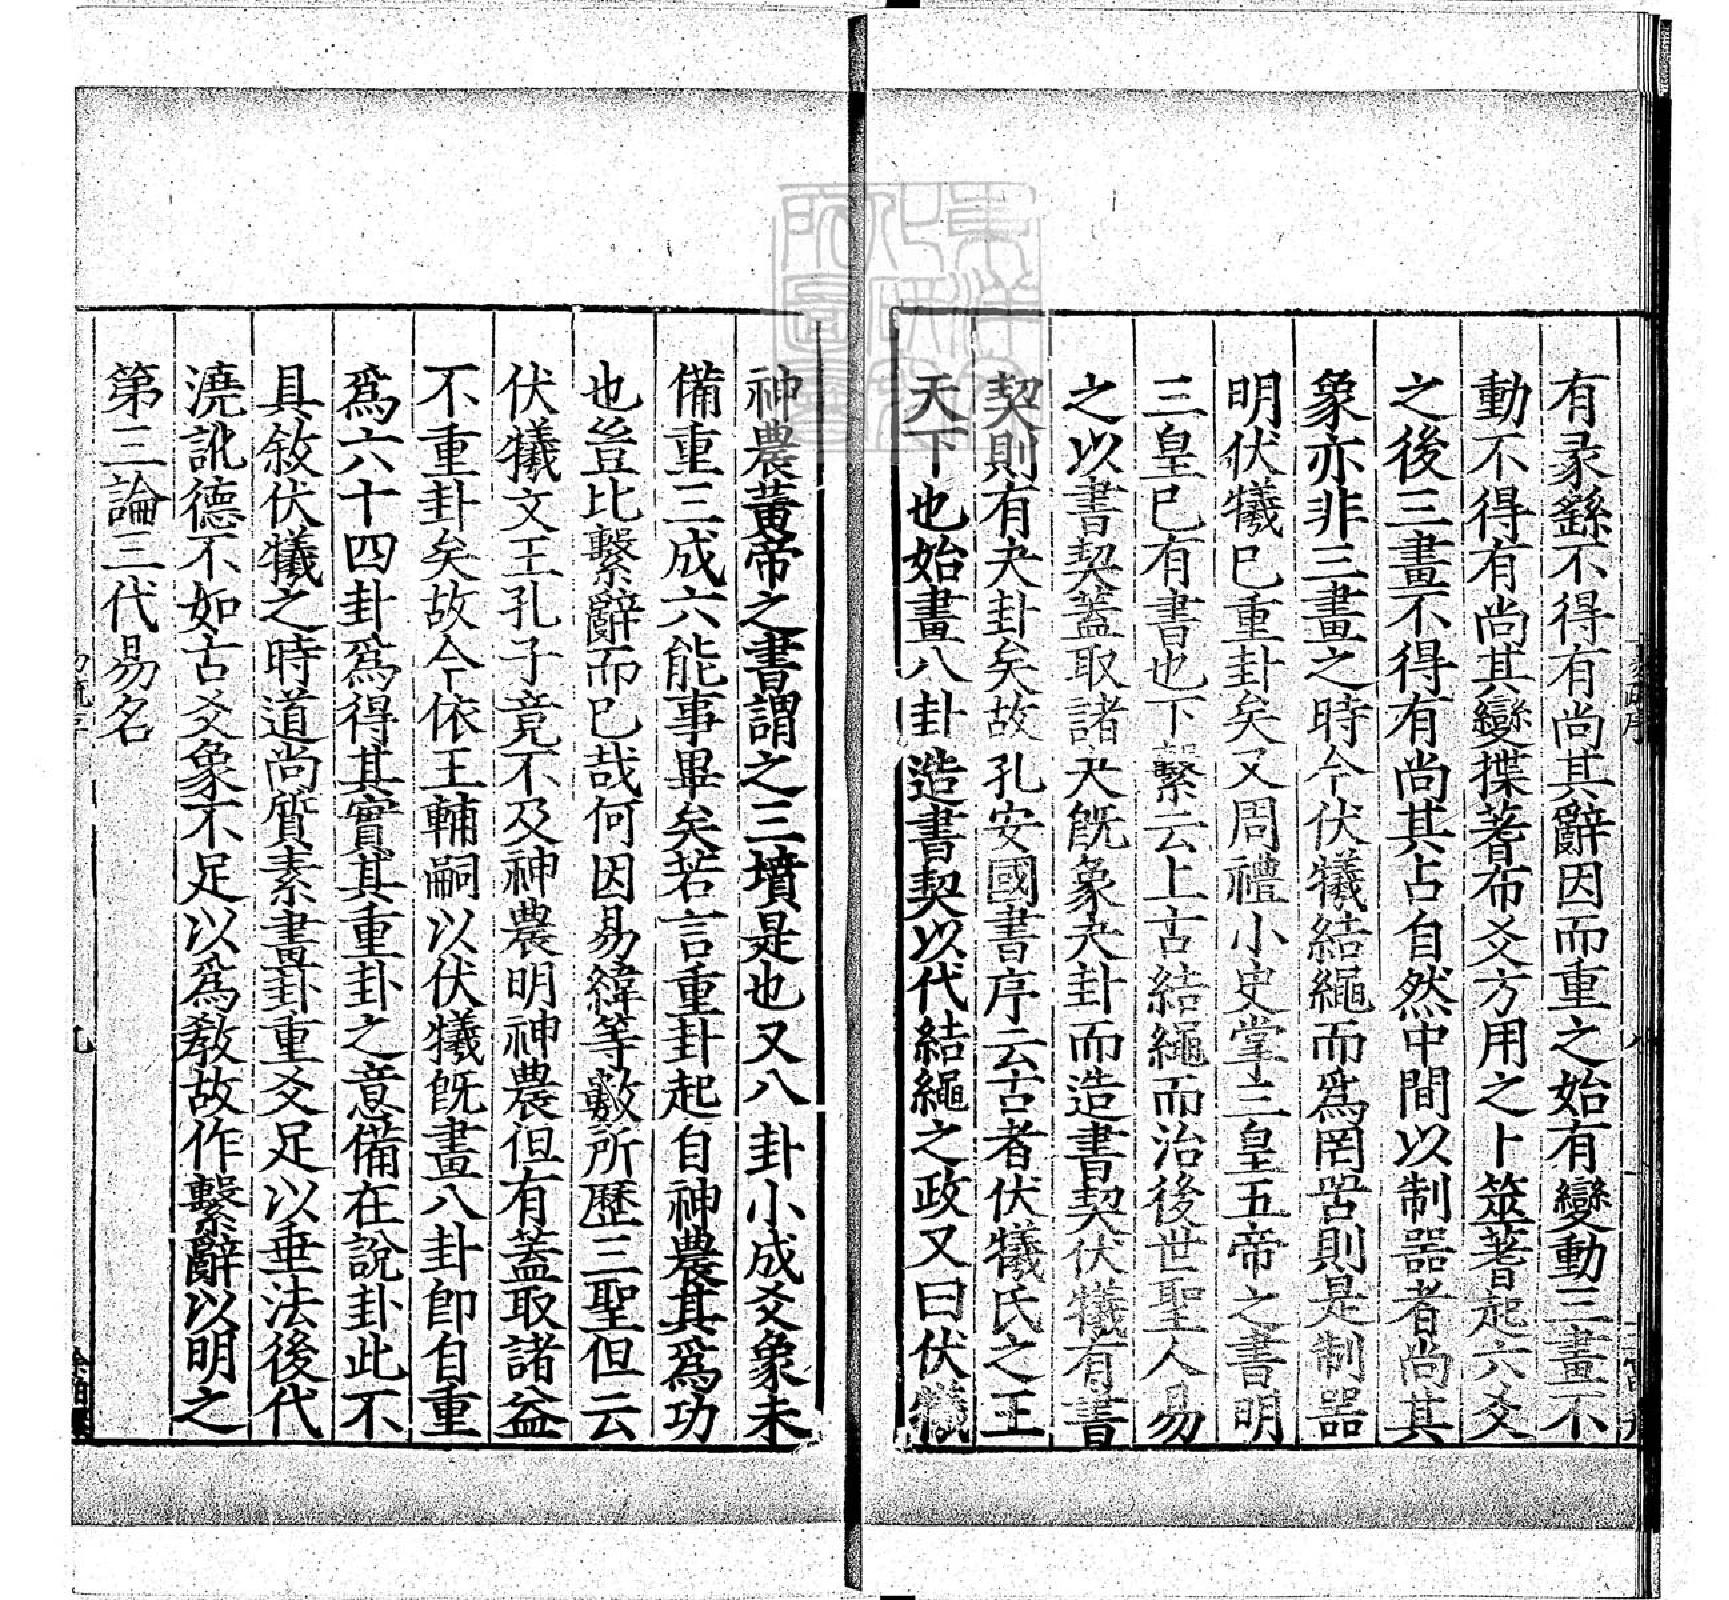 有彖繇不得有尚其辭因而重之始有變動三畫不
動不得有尚其變揲蓍布爻方用之卜筮蓍起六爻
之後三畫不得有尚其占自然中間以制器者尚其
象亦非三畫之時今伏犧結繩而爲罔罟則是制器
明伏犧已重卦矣又周禮小史掌三皇五帝之書明
三皇已有書也下繫云上古結繩而治後世聖人易
之以書契蓋取諸夬旣象夬卦而造書契伏犧有書
契則有夬卦矣故孔安國書序云古者伏犧氏之王
天下也始畫八卦造書契以代結繩之政又曰伏犧
神農黃帝之書謂之三墳是也又八卦小成爻象未
備重三成六能事畢矣若言重卦起自神農其爲功
也豈比繫辭而已哉何因易緯等數所歷三聖但云
伏犧文王孔子竟不及神農明神農但有蓋取諸益
不重卦矣故今依王輔嗣以伏犧旣畫八卦卽自重
爲六十四卦爲得其實其重卦之意備在說卦此不
具敘伏犧之時道尚質素畫卦重爻足以垂法後代
澆訛德不如古爻象不足以爲敎故作繫辭以明之
第三論三代易名